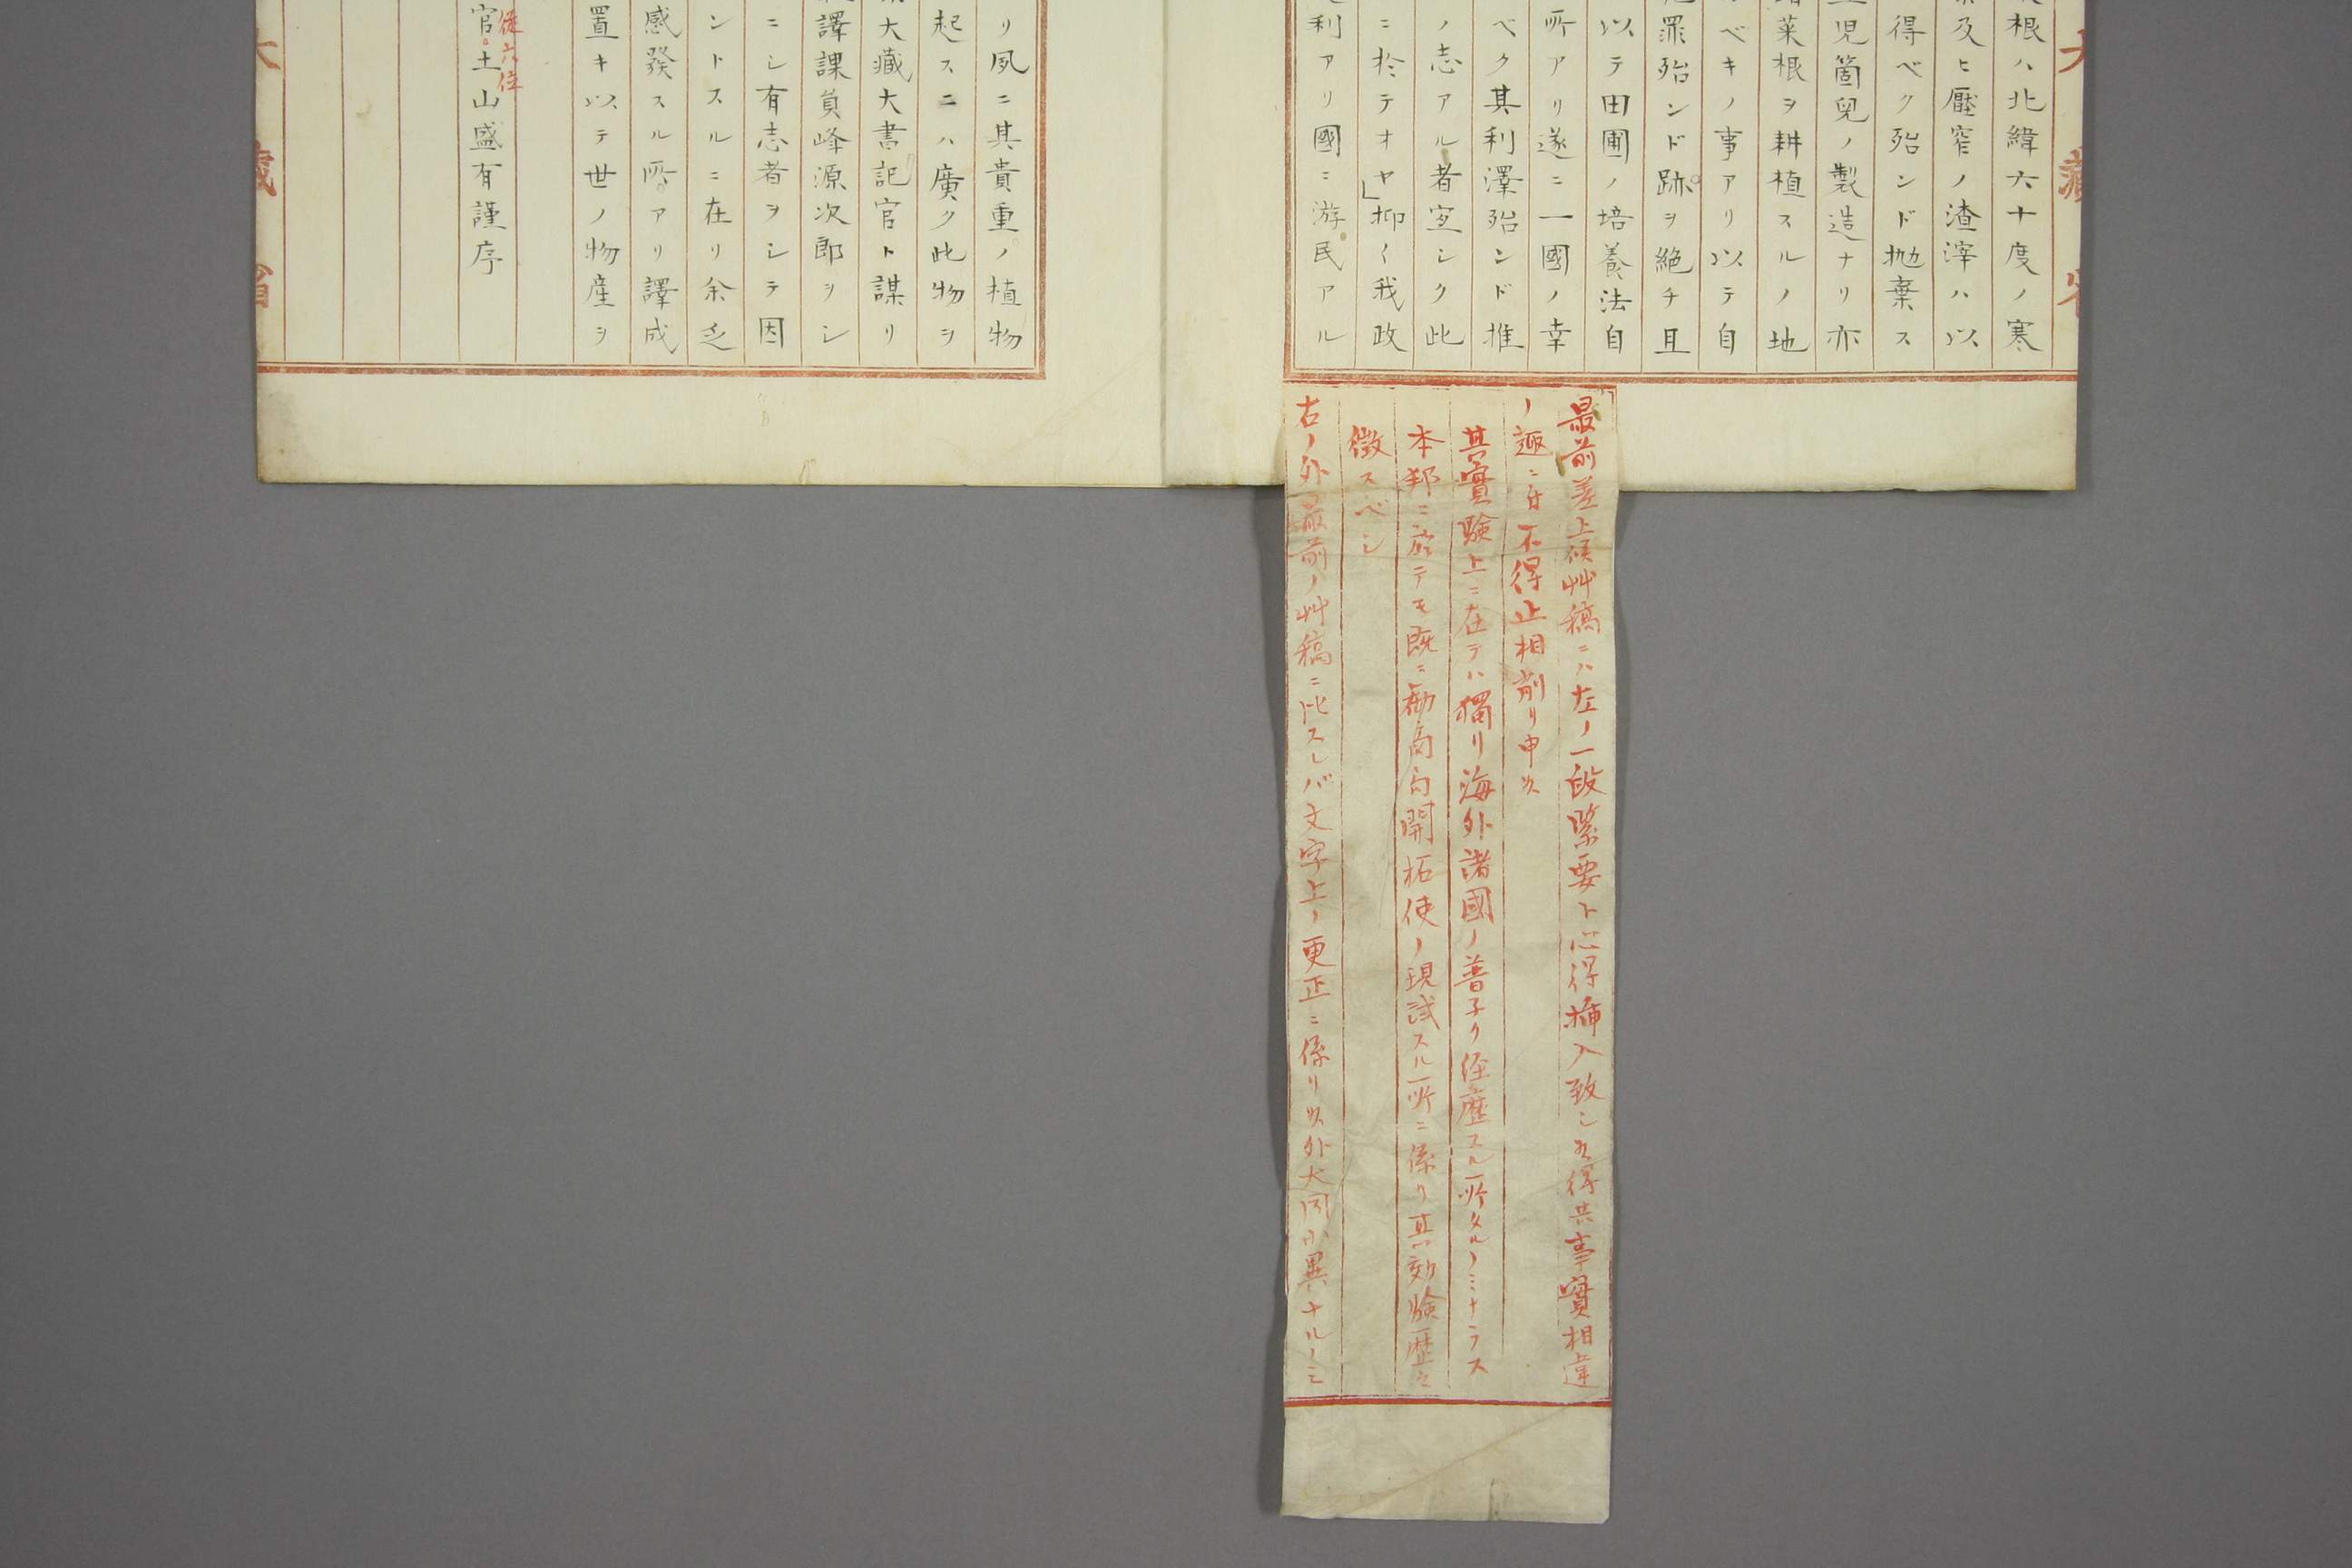 大藏省
根ハ北緯六十度ノ寒
及ヒ壓窄ノ渣滓ハ以
得ベク殆ンド抛棄ス
児箇児ノ製造ナリ亦
菜根ヲ耕植スルノ地
ベキノ事アリ以テ自
罪殆ンド跡ヲ絶チ且
以テ田圃ノ培養法自
所アリ遂ニ一國ノ幸
ベク其利澤殆ンド推
ノ志アル者寔シク此
ニ於テオヤ」抑〱我政
利アリ國ニ游民アル
最前差上候艸稿ニハ左ノ一段緊要ト心得挿入致シ候得共事實相違
ノ趣ニ付不得止相削リ申候
其實驗上ニ在テハ獨リ海外諸國ノ普子ク經歴スル所タルノミナラス
本邦ニ於テモ既ニ勸商局開拓使ノ現試スル所ニ係リ其効驗歴々
徴スベシ
右ノ外最前ノ艸稿ニ比スレバ文字上ノ更正ニ係リ候外大同小異ナルノミ
リ夙ニ其貴重ノ植物
起スニハ廣ク此物ヲ
大藏大書記官ト謀リ
譯課員峰源次郎ヲシ
ニシ有志者ヲシテ因
ントスルニ在リ余乏
感發スル所アリ譯成
置キ以テ世ノ物産ヲ
從六位
官土山盛有謹序
大藏省